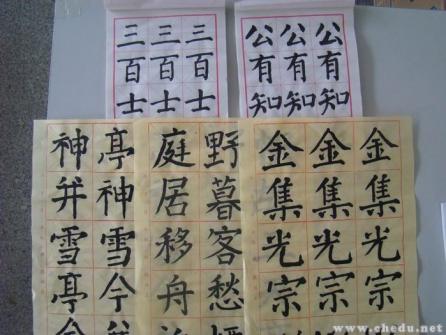 三百士
三百士
三百士
公有知
公有知
公有知
亭神雪今
神并雪亭
野暮客愁
庭居移舟
金集光宗
金集光宗
金集光宗
www.chedu.net